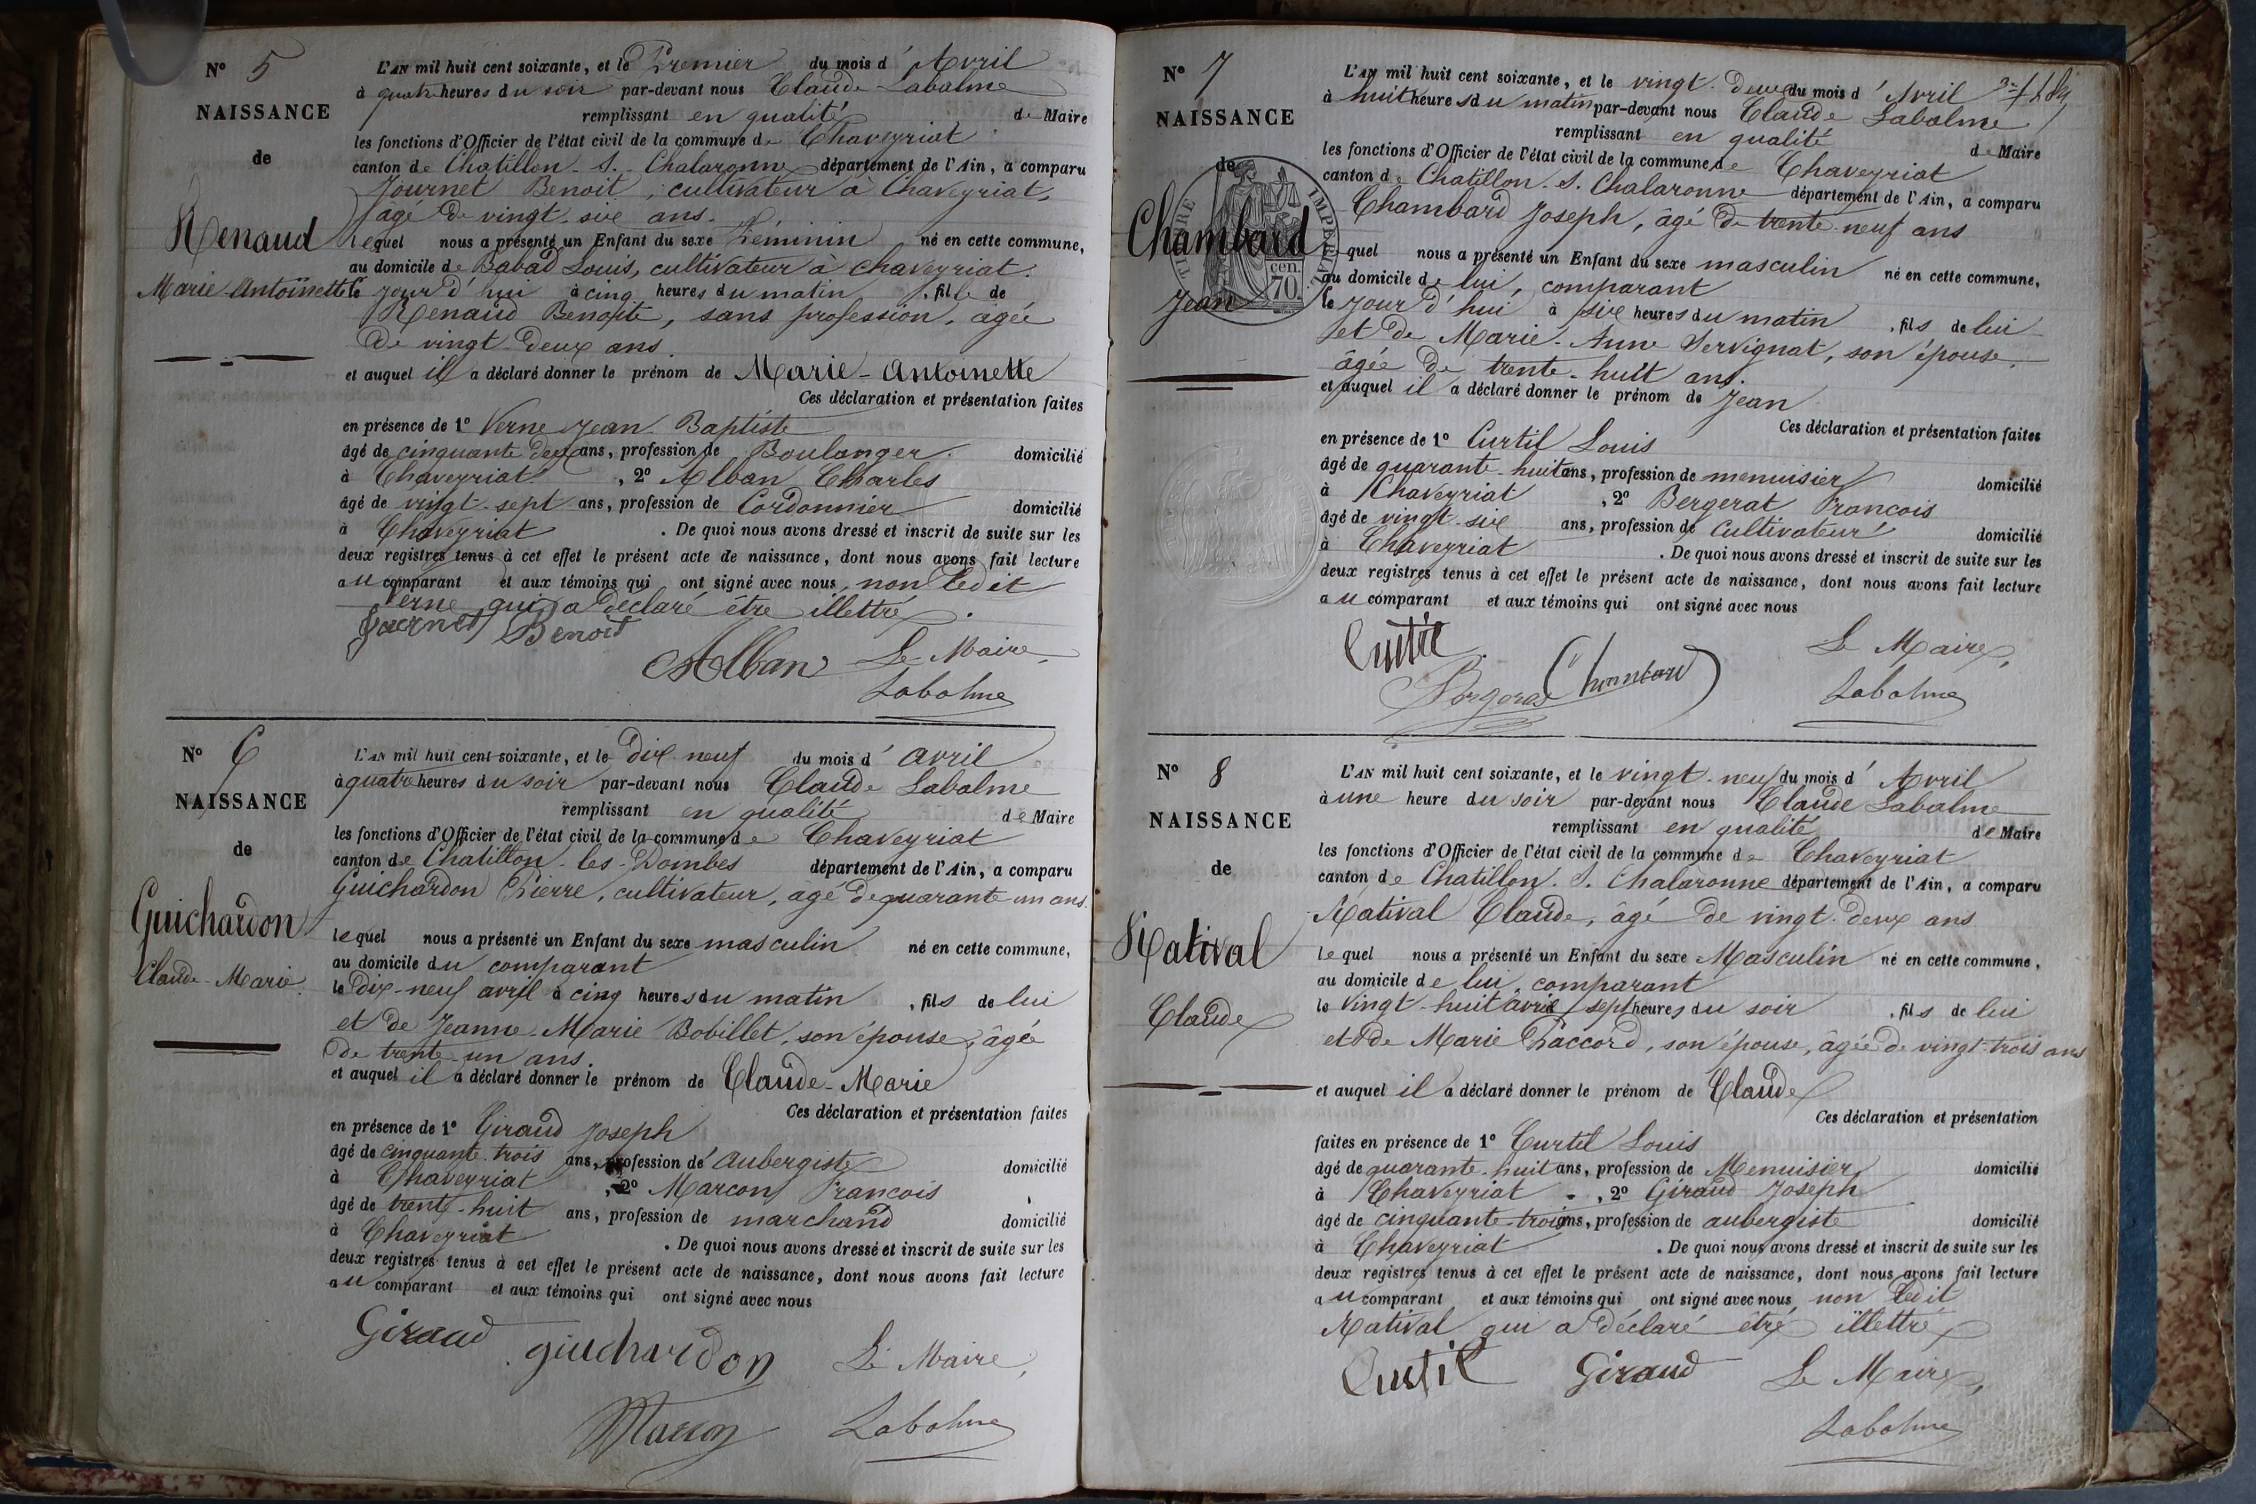 N° 5
NAISSANCE
de
Renaud
Marie-Antoinette
L'AN mil huit cent soixante, et le Premier du mois d'Avril
à quatre heures du soir par-devant nous Claude Labalme
remplissant en qualité de Maire
les fonctions d'Officier de l'état civil de la commune de Chaveyriat
canton de Chatillon-S.-Chalaronne département de l'Ain, a comparu
Journet Benoit, cultivateur à Chaveyriat,
âgé de vingt-six ans.
lequel nous a présenté un Enfant du sexe Féminin né en cette commune,
au domicile de Babad Louis, cultivateur à Chaveyriat.
le jour d'hui à cinq heures du matin, fille de
Renaud Benoite, sans profession, agée
de vingt-deux ans.
et auquel il a déclaré donner le prénom de Marie-Antoinette
Ces déclaration et présentation faites
en présence de 1° Verne Jean Baptiste
âgé de cinquante deux ans, profession de Boulanger. domicilié
à Chaveyriat, 2° Alban Charles
âgé de vingt-sept ans, profession de Cordonnier domicilié
à Chaveyriat. De quoi nous avons dressé et inscrit de suite sur les
deux registres tenus à cet effet le présent acte de naissance, dont nous avons fait lecture
au comparant et aux témoins qui ont signé avec nous, non ledit
Verne qui a déclaré être illettré.
Journet Benoit
Alban Le Maire,
Labalme
N° 6
NAISSANCE
de
Guichardon
Claude-Marie
L'AN mil huit cent soixante, et le Dix neuf du mois d'avril
à quatre heures du soir par-devant nous Claude Labalme
remplissant en qualité de Maire
les fonctions d'Officier de l'état civil de la commune de Chaveyriat
canton de Chatillon-les-Dombes département de l'Ain, a comparu
Guichardon Pierre, cultivateur, agé de quarante un ans.
lequel nous a présenté un Enfant du sexe masculin né en cette commune,
au domicile du comparant
le Dix-neuf avril à cinq heures du matin, fils de lui
et de Jeanne-Marie Bobillet, son épouse, âgée
de trente-un ans.
et auquel il a déclaré donner le prénom de Claude-Marie
Ces déclaration et présentation faites
en présence de 1° Giraud Joseph
âgé de cinquante trois ans, profession de aubergiste domicilié
à Chaveyriat, 2° Marcon Francois
âgé de trente-huit ans, profession de marchand domicilié
à Chaveyriat. De quoi nous avons dressé et inscrit de suite sur les
deux registres tenus à cet effet le présent acte de naissance, dont nous avons fait lecture
au comparant et aux témoins qui ont signé avec nous
Giraud guichardon Le Maire,
Marcon Labalme
N° 7
NAISSANCE
de
Chambard
Jean
TIMBRE IMPERIAL
70 cen.
L'AN mil huit cent soixante, et le vingt-deux du mois d'Avril
à huit heures du matin par-devant nous Claude Labalme
remplissant en qualité de Maire
les fonctions d'Officier de l'état civil de la commune de Chaveyriat
canton de Chatillon-S.-Chalaronne département de l'Ain, a comparu
Chambard Joseph, âgé de trente-neuf ans
lequel nous a présenté un Enfant du sexe masculin né en cette commune,
au domicile de lui, comparant
le jour d'hui à six heures du matin, fils de lui
et de Marie-Anne Servignat, son épouse,
âgée de trente-huit ans.
et auquel il a déclaré donner le prénom de Jean
Ces déclaration et présentation faites
en présence de 1° Curtil Louis
âgé de quarante-huit ans, profession de menuisier domicilié
à Chaveyriat, 2° Bergerat Francois
âgé de vingt-six ans, profession de cultivateur domicilié
à Chaveyriat. De quoi nous avons dressé et inscrit de suite sur les
deux registres tenus à cet effet le présent acte de naissance, dont nous avons fait lecture
au comparant et aux témoins qui ont signé avec nous
Curtil Le Maire,
Bergerat Chambard Labalme
N° 8
NAISSANCE
de
Ratival
Claude
L'AN mil huit cent soixante, et le vingt-neuf du mois d'Avril
à une heure du soir par-devant nous Claude Labalme
remplissant en qualité de Maire
les fonctions d'Officier de l'état civil de la commune de Chaveyriat
canton de Chatillon.S.Chalaronne département de l'Ain, a comparu
Ratival Claude, âgé de vingt-deux ans
lequel nous a présenté un Enfant du sexe Masculin né en cette commune,
au domicile de lui, comparant
le vingt-huit avril sept heures du soir, fils de lui
et de Marie Paccord, son épouse, âgée de vingt-trois ans
et auquel il a déclaré donner le prénom de Claude
Ces déclaration et présentation
faites en présence de 1° Curtil Louis
âgé de quarante-huit ans, profession de Menuisier domicilié
à Chaveyriat, 2° Giraud Joseph
âgé de cinquante-trois ans, profession de aubergiste domicilié
à Chaveyriat. De quoi nous avons dressé et inscrit de suite sur les
deux registres tenus à cet effet le présent acte de naissance, dont nous avons fait lecture
au comparant et aux témoins qui ont signé avec nous, non ledit
Ratival qui a déclaré être illettré
Curtil Giraud Le Maire,
Labalme